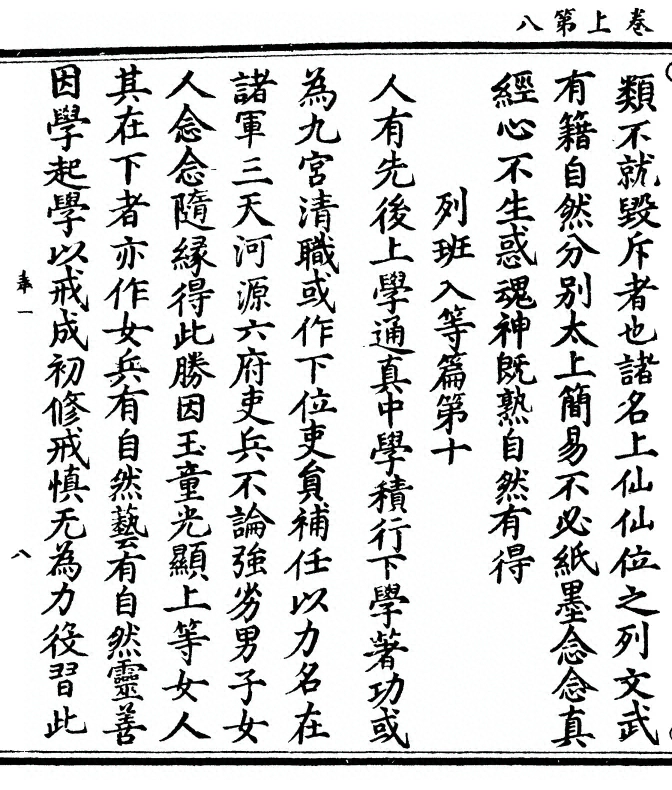 卷上第八
類不就毀斥者也諸名上仙仙位之列文武
有籍自然分別太上簡易不必紙墨念念真
經心不生惑魂神既熟自然有得
列班入等篇第十
人有先後上學通真中學積行下學著功或
為九宮清職或作下位吏負補任以力名在
諸軍三天河源六府吏兵不論強劣男子女
人念念隨緣得此勝因玉童光顯上等女人
其在下者亦作女兵有自然藝有自然靈善
因學起學以戒成初修戒慎无為力役習此
一
八